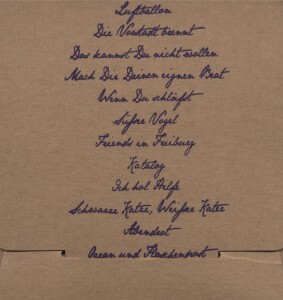 Luftballon
Die Vorstadt brennt
Das kannst Du nicht wollen
Mach Dir Deinen eignen Beat
Wenn Du schläfst
Süßer Vogel
Friends in Freiburg
Katalog
Ich hol Hilfe
Schwarze Katze, Weißer Kater
Abendrot
Ozean und Flaschenpost